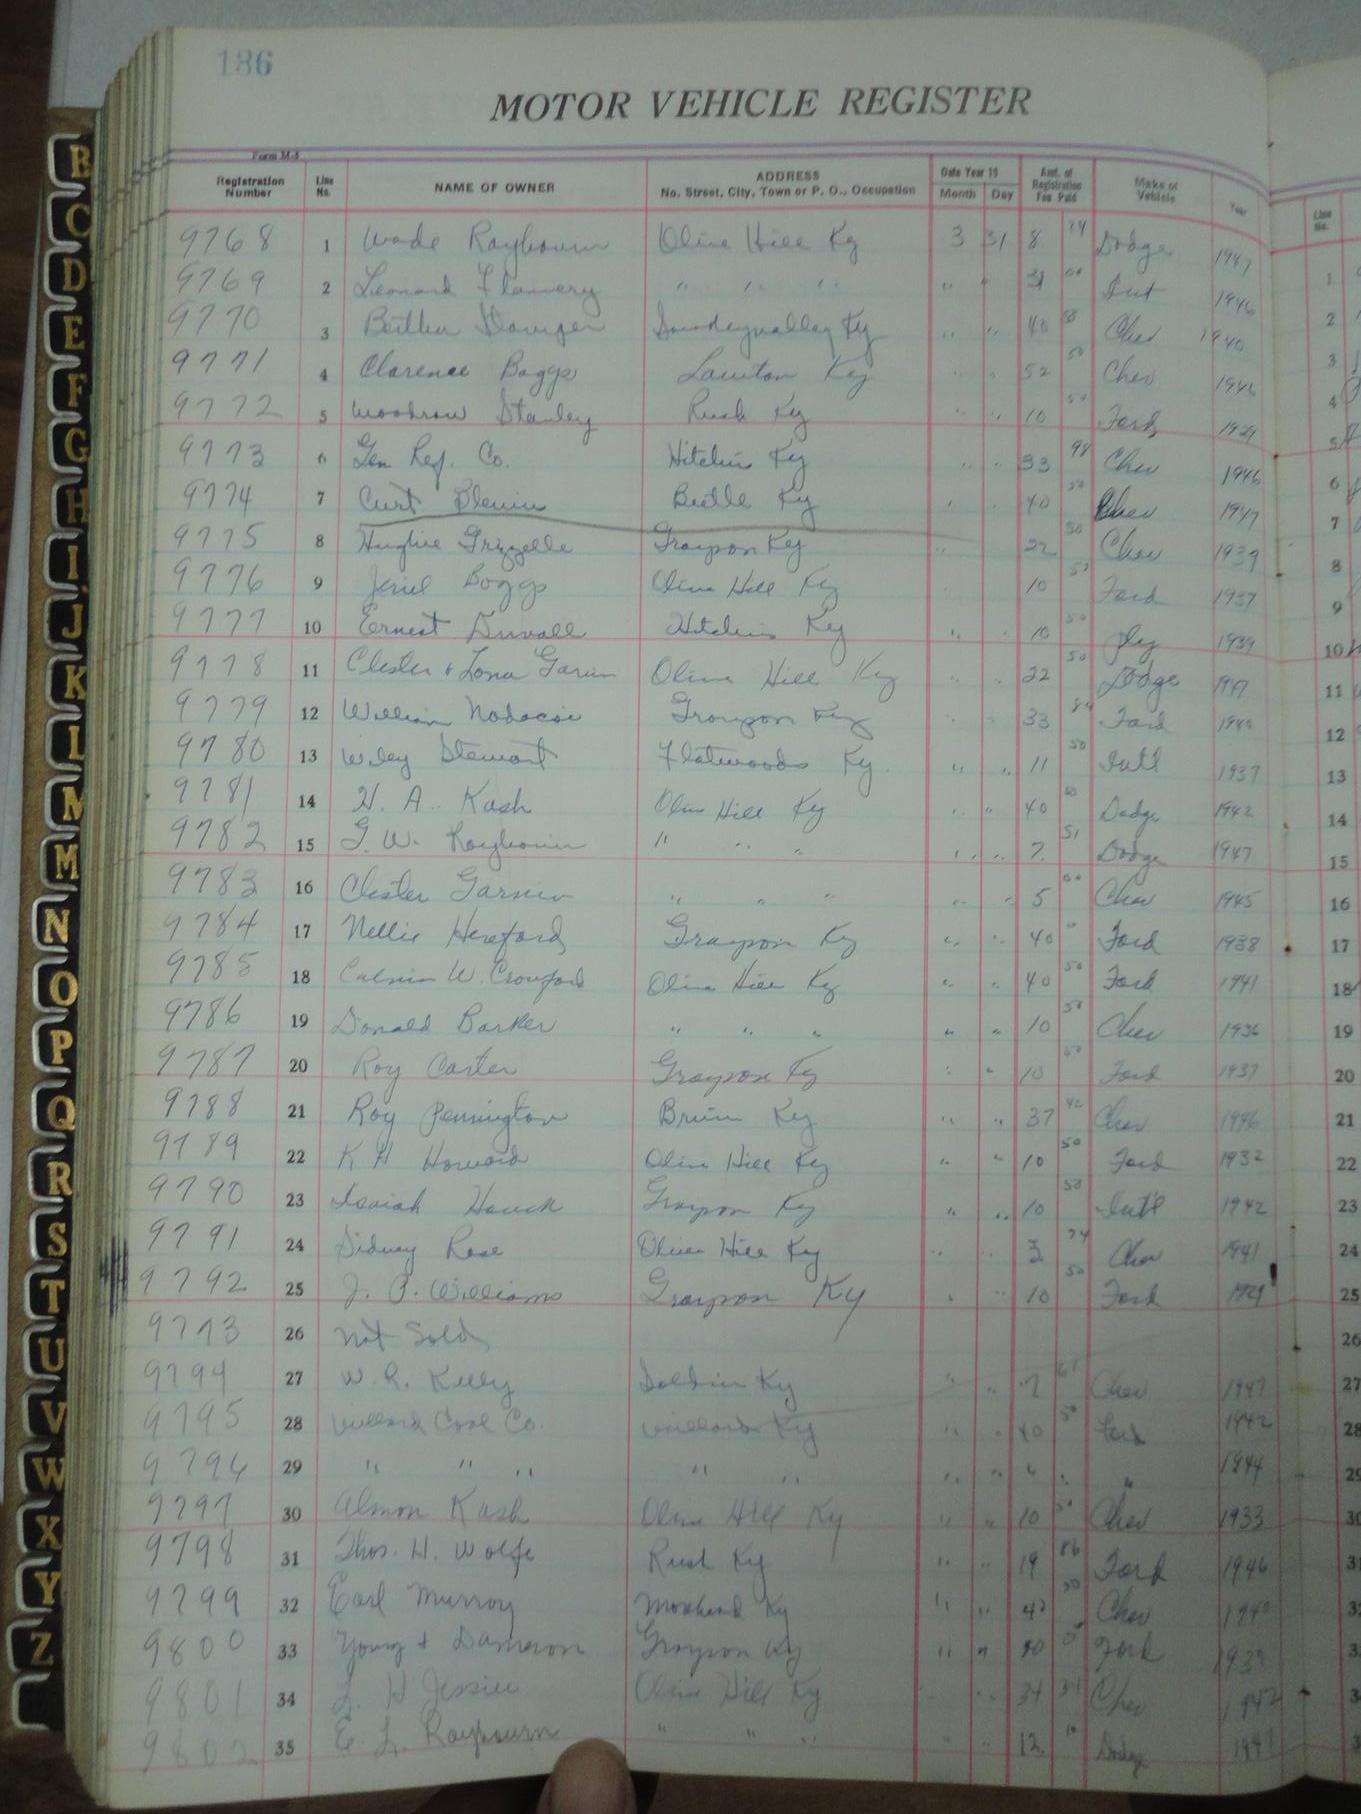 186
MOTOR VEHICLE REGISTER
Form M-5
Registration Number Line No. NAME OF OWNER ADDRESS No. Street, City, Town or P. O., Occupation Date Year 19 Month Day Amt. of Registration Fee Paid Make of Vehicle Year Line No.
9768 1 Wade Raybourn Olive Hill Ky 3 31 8 74 Dodge 1947
9769 2 Leonard Flannery " " " " " 31 00 Int 1946 1
9770 3 Ky " " 40 Chev 1940 2
9771 4 Clarence Boggs Lawton Ky " " 52 50 Chev 1946 3
9772 5 Woodrow Stanley Rush Ky " " 10 50 Ford 1929 4
9773 6 Gen Ref. Co. Hitchins Ky " " 33 98 Chev 1946 5
9774 7 Curt Blevins Beetle Ky " " 40 50 Chev 1947 6
9775 8 Hughie Grizzelle Grayson Ky " 22 50 Chev 1939 7
9776 9 Boggs Olive Hill Ky 10 50 Ford 1937 8
9777 10 Ernest Duvall Hitchins Ky " " 10 50 Ply 1939 9
9778 11 Chester & Lona Garvin Olive Hill Ky " " 22 50 Dodge 1947 10
9779 12 William Grayson Ky " " 33 84 Ford 1940 11
9780 13 Wiley Stewart Flatwoods Ky. " " 11 50 Int'l 1937 12
9781 14 H. A. Kash Olive Hill Ky " " 40 50 Dodge 1942 13
9782 15 G. W. Raybourn " " " " " 7. 51 Dodge 1947 14
9783 16 Chester Garvin " " " " " 5 00 Chev 1945 15
9784 17 Nellie Hereford Grayson Ky " " 40 Ford 1938 16
9785 18 Calvin W. Crawford Olive Hill Ky " " 40 50 Ford 1941 17
9786 19 Donald Barker " " " " " 10 50 Chev 1936 18
9787 20 Roy Carter Grayson Ky " " 10 50 Ford 1937 19
9788 21 Roy Pennington Bruin Ky " " 37 42 Chev 1946 20
9789 22 K H Howard Olive Hill Ky " " 10 50 Ford 1932 21
9790 23 Isaiah Grayson Ky " " 10 50 Int'l 1942 22
9791 24 Sidney Rose Olive Hill Ky " " 74 Chev 1941 23
9792 25 J. P. Williams Grayson Ky " " 10 50 Ford 24
9793 26 Not Sold 25
9794 27 W. R. Kelly Ky " " 7 Chev 1947 26
9795 28 Willard Coal Co. Willard Ky " " 40 50 Ford 1942 27
9796 29 " " " " " " " " " " 1944 28
9797 30 Almon Kash Olive Hill Ky " " 10 50 Chev 1933 29
9798 31 Thos. H. Wolfe Rush Ky " " 19 86 Ford 1946 30
9799 32 Earl Murray Morehead Ky " " Chev 1940 31
9800 33 Young & Dameron Grayson Ky " " Ford
9801 34 L. H Jessie Olive Hill Ky " " 34 34 Chev 1947
9802 35 E. L. Raybourn " " " " " 12. 10 Dodge 1947
B
C
D
E
F
G
H
I
J
K
L
M
M
N
O
P
Q
R
S
T
U
V
W
X
Y
Z